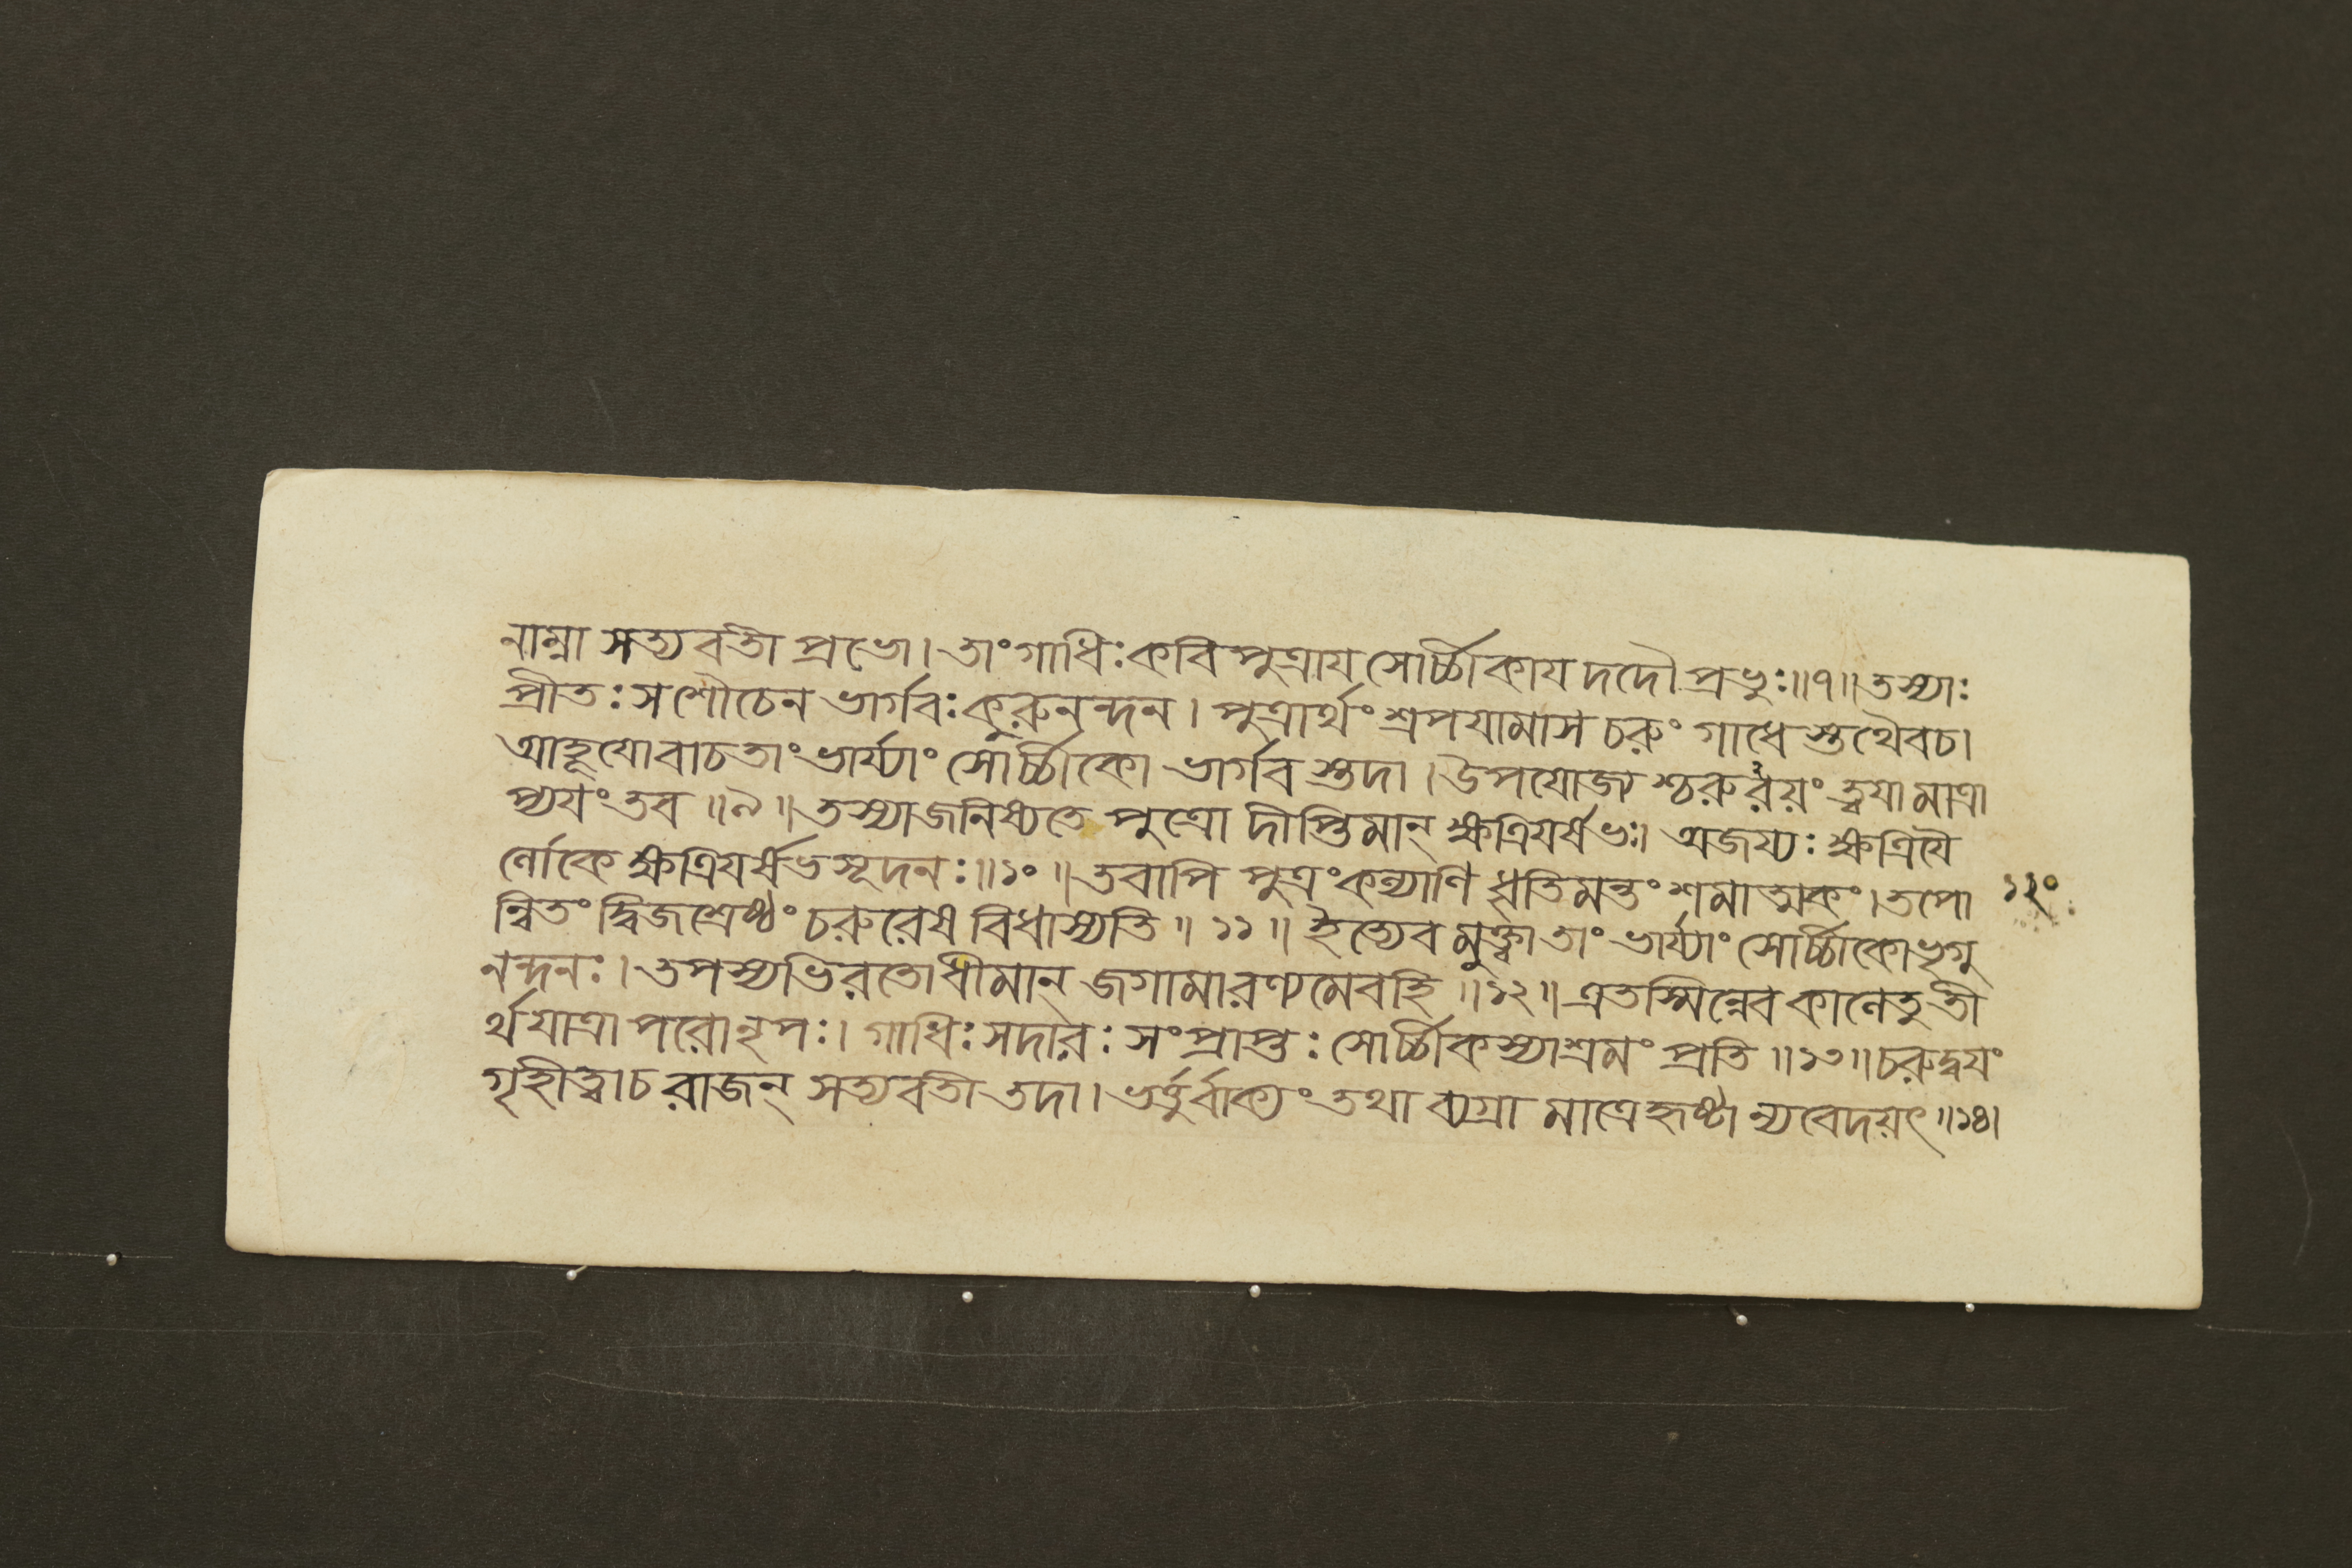 নাম্না সত্যবতী প্রভো। তাং গাধিঃ কবিপুত্রায সোর্চ্চীকায দদৌ প্রভুঃ॥৭॥ তস্যাঃ
প্রীতঃ স শৌচেন ভার্গবঃ কুরুনন্দন। পুত্রার্থং শ্রপযামাস চরুং গাধেস্তথৈবচ।
আহূযোবাচ তাং ভার্য্যাং সোর্চ্চীকো ভার্গবস্তদা। উপযোজ্য শ্চরুরয়ং ত্বযা মাত্রা
প্যযং তব॥৯॥ তস্যাজনিষ্যতে পুত্রো দীপ্তিমান্ ক্ষত্রিযর্ষভঃ। অজয্যঃ ক্ষত্রিযৈ
র্লোকে ক্ষত্রিযর্ষভসূদনঃ॥১০॥ তবাপি পুত্রং কল্যাণি ধৃতিমন্তং শমাত্মকং। তপো
ন্বিতং দ্বিজশ্রেষ্ঠং চরুরেষ বিধাস্যতি॥১১॥ ইত্যেবমুক্ত্বা তাং ভার্য্যাং সোর্চ্চীকো ভৃগু
নন্দনঃ। তপস্যভিরতো ধীমান্ জগামারণ্যমেবহি॥১২॥ এতস্মিন্নেব কালেতু তী
র্থযাত্রাপরোনৃপঃ। গাধিঃ সদারঃ সংপ্রাপ্তঃ সোর্চ্চীকস্যাশ্রমং প্রতি॥১৩॥ চরুদ্বযং
গৃহীত্বাচ রাজন্ সত্যবতী তদা। ভর্ত্তুর্বাক্যং তথা ব্যগ্রা মাত্রে হৃষ্টা ন্যবেদয়ৎ॥১৪।
১২০